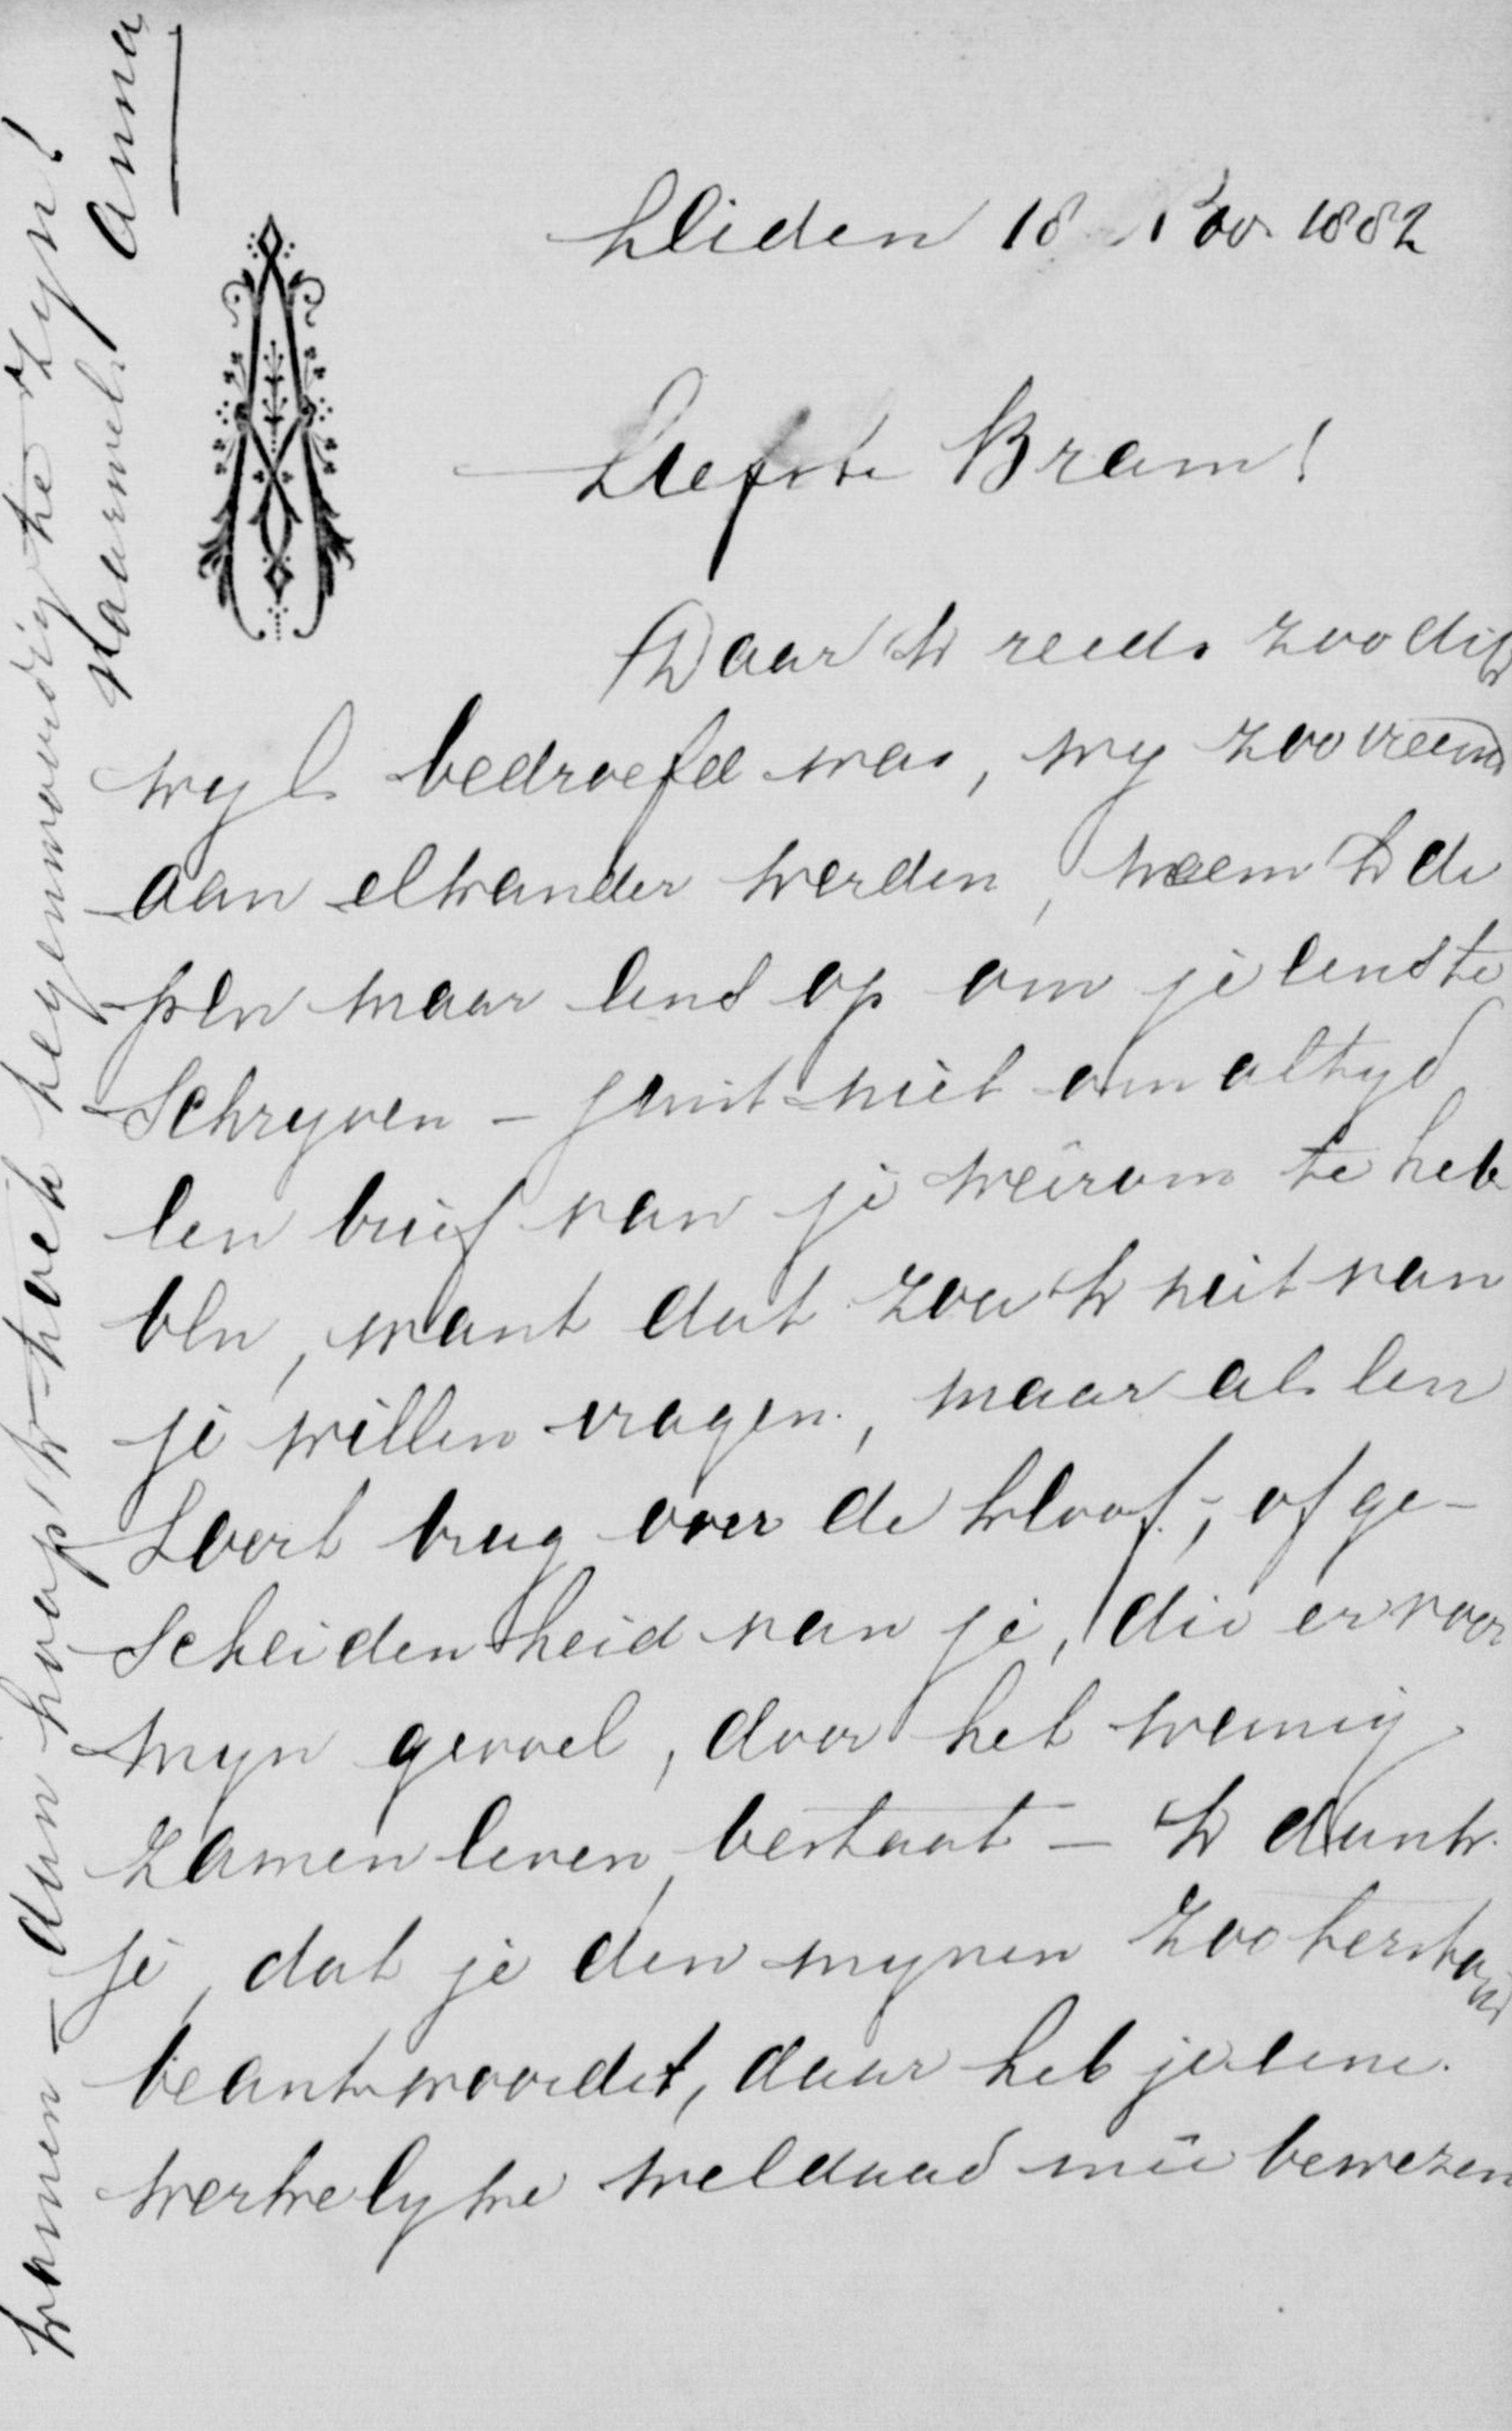 Leiden 18 Nov. 1882
Liefste Bram!
Daar ik reeds zoo dik
wyls bedroefd was, wy zoo vreemd
aan elkander werden, neem ik de
pen maar eens op om je eens te
Schryven – juist niet om altyd
een brief van je weêrom te heb
ben, want dat zou ik niet van
je willen vragen, maar als een
Soort brug over de kloof, of ge-
scheidenheid van je, die er voor
myn gevoel, door het weinig
zamenleven, bestaat – Ik dank
je, dat je den mynen zoo terstond
beantwoordet, daar heb je eene
werkelyke weldaad meê bewezen
komen – dan hoop ik toch tegenwoordig te zyn!
Vaarwel. Anna